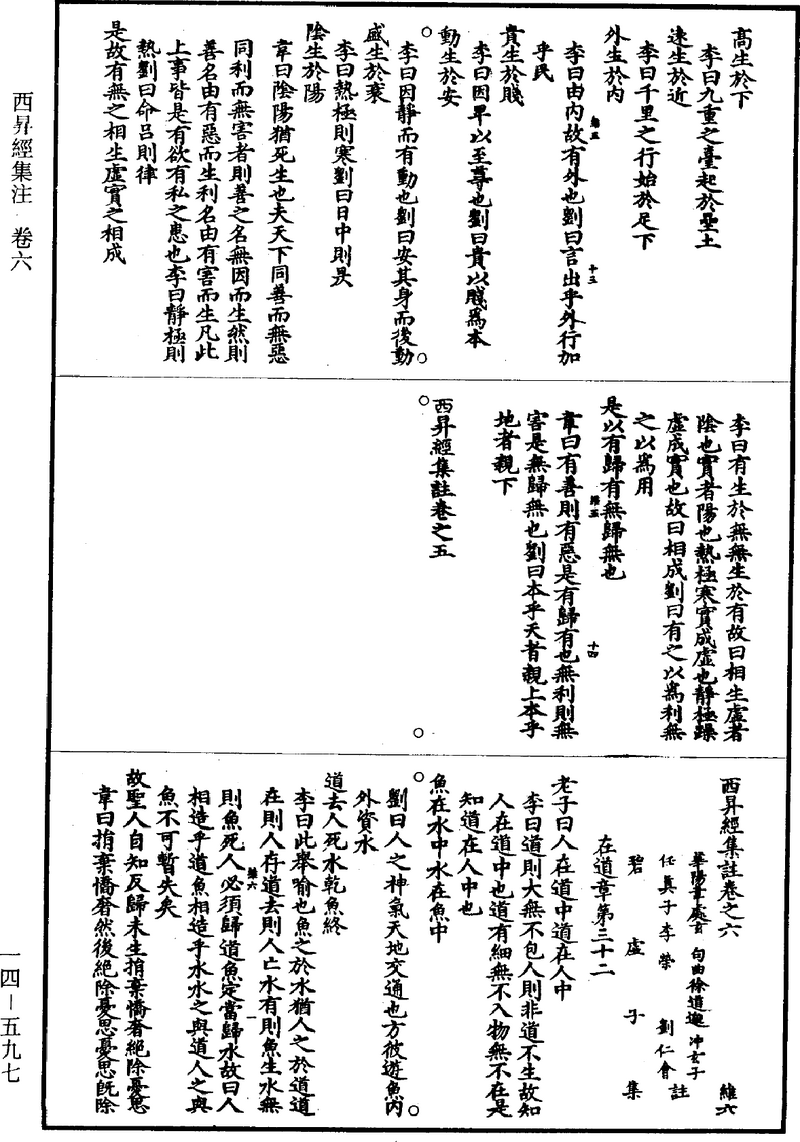 高生於下
李曰九重之臺起於壘土
遠生於近
李曰千里之行始於足下
外生於內
李曰由內故有外也劉曰言出乎外行加
乎民
貴生於賤
李曰因卑以至尊也劉曰貴以賤為本
動生於安
李曰因靜而有動也劉曰安其身而後動
盛生於衰
李曰熱極則寒劉曰日中則昃
陰生於陽
韋曰陰陽猶死生也夫天下同善而無惡
同利而無害者則善之名無因而生然則
善名由有惡而生利名由有害而生凡此
上事皆是有欲有私之患也李曰靜極則
熱劉曰命呂則律
是故有無之相生虛實之相成
西昇經集注 卷六
李曰有生於無無生於有故曰相生虛者
陰也實者陽也熱極寒實成虛也靜極躁
虛成實也故曰相成劉曰有之以為利無
之以為用
是以有歸有無歸無也
韋曰有善則有惡是有歸有也無利則無
害是無歸無也劉曰本乎天者親上本乎
地者親下
西昇經集註卷之五
西昇經集註卷之六
維六
華陽韋處玄 句曲徐道邈 沖玄子
任真子李榮 劉仁會 註
碧虛子 集
在道章第三十二
老子曰人在道中道在人中
李曰道則大無不包人則非道不生故知
人在道中也道有細無不入物無不在是
知道在人中也
魚在水中水在魚中
劉曰人之神氣天地交通也方彼遊魚內
外資水
道去人死水乾魚終
李曰此舉喻也魚之於水猶人之於道道
在則人存道去則人亡水有則魚生水無
則魚死人必須歸道魚定當歸水故曰人
相造乎道魚相造乎水水之與道人之與
魚不可暫失矣
故聖人自知反歸未生捐棄憍奢絕除憂思
韋曰捐棄憍奢然後絕除憂思憂思既除
一四—五九七